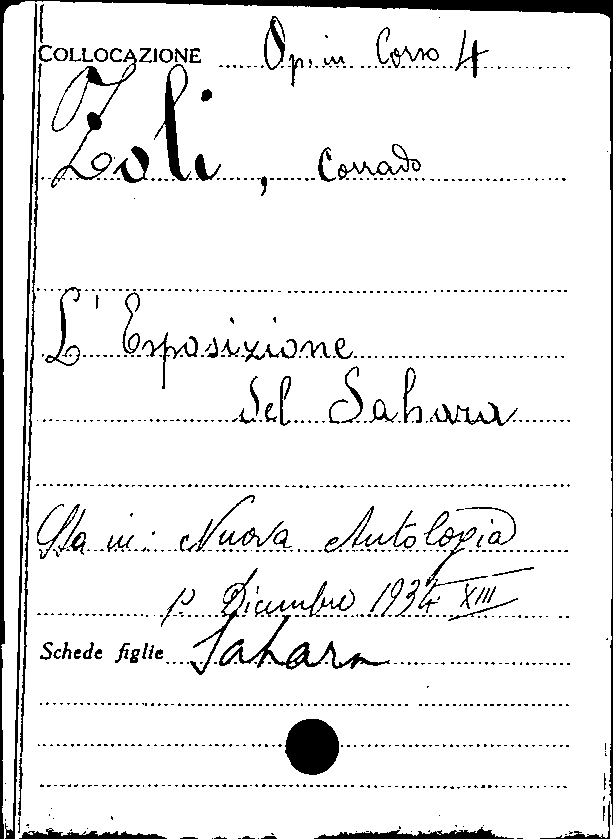 COLLOCAZIONE Op. in Corso 4
Zoli, Corrado
L'Esposizione
del Sahara
Sta in: Nuova Antologia
1º Dicembre 1934 XIII
Schede figlie Sahara